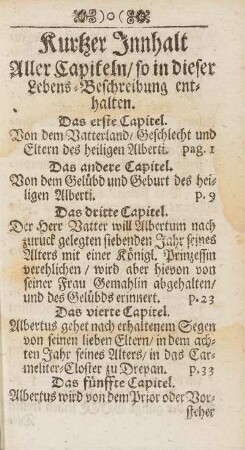 )o(
Kurtzer Innhalt
Aller Capiteln/ so in dieser
Lebens-Beschreibung ent-
halten.
Das erste Capitel.
Von dem Vatterland/ Geschlecht und
Eltern des heiligen Alberti. pag. 1
Das andere Capitel.
Von dem Gelübd und Geburt des hei-
ligen Alberti. p. 9
Das dritte Capitel.
Der Herr Vatter will Albertum nach
zuruck gelegten siebenden Jahr seines
Alters mit einer Königl. Prinzessin
verehlichen/ wird aber hievon von
seiner Frau Gemahlin abgehalten/
und des Gelübds erinnert. p. 23
Das vierte Capitel.
Albertus gehet nach erhaltenem Segen
von seinen lieben Eltern/ in dem ach-
ten Jahr seines Alters/ in das Car-
meliter-Closter zu Drepan. p. 33
Das fünffte Capitel.
Albertus wird von dem Prior oder Vor-
steher